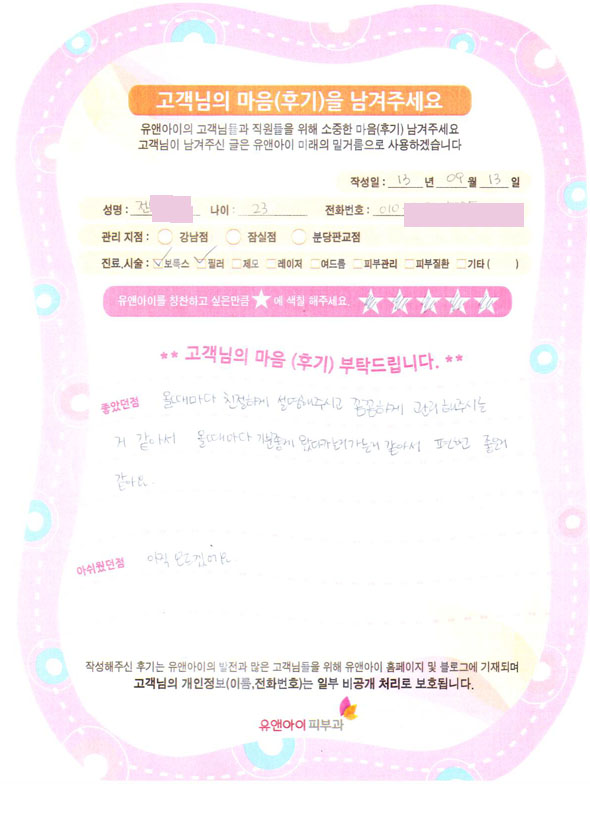 고객님의 마음(후기)을 남겨주세요
유앤아이의 고객님들과 직원들을 위해 소중한 마음(후기) 남겨주세요
고객님이 남겨주신 글은 유앤아이 미래의 밑거름으로 사용하겠습니다
작성일 : 13 년 09 월 13 일
성명 : 전 나이 : 23 전화번호 : 010-
관리 지점 : 강남점 잠실점 분당판교점
진료,시술 : 보톡스 필러 제모 레이저 여드름 피부관리 피부질환 기타 ( )
유앤아이를 칭찬하고 싶은만큼 ★ 에 색칠 해주세요.
** 고객님의 마음 (후기) 부탁드립니다. **
좋았던점 올때마다 친절하게 설명해주시고 꼼꼼하게 관리해주시는
거 같아서 올때마다 기분좋게 왔다가는거 같아서 편하고 좋은거
같아요.
아쉬웠던점 아직 모르겠어요.
작성해주신 후기는 유앤아이의 발전과 많은 고객님들을 위해 유앤아이 홈페이지 및 블로그에 기재되며
고객님의 개인정보(이름,전화번호)는 일부 비공개 처리로 보호됩니다.
유앤아이피부과